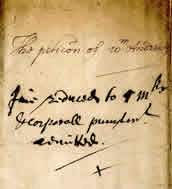 The peticon of Wm Andrews
fine reduced to 5 mks
& corporall punishmt
admitted.